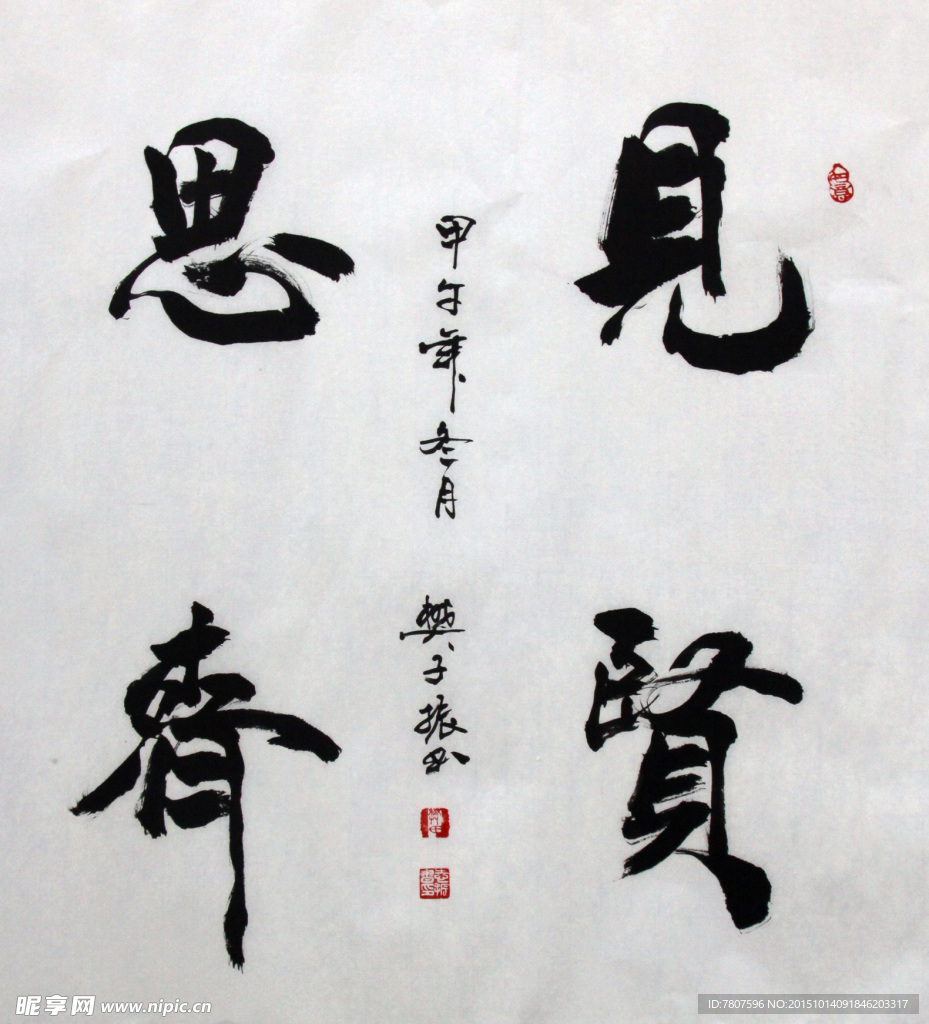 見賢
思齊
甲午年冬月 樊子振书
昵享网 www.nipic.cn
ID:7807596 NO:20151014091846203317